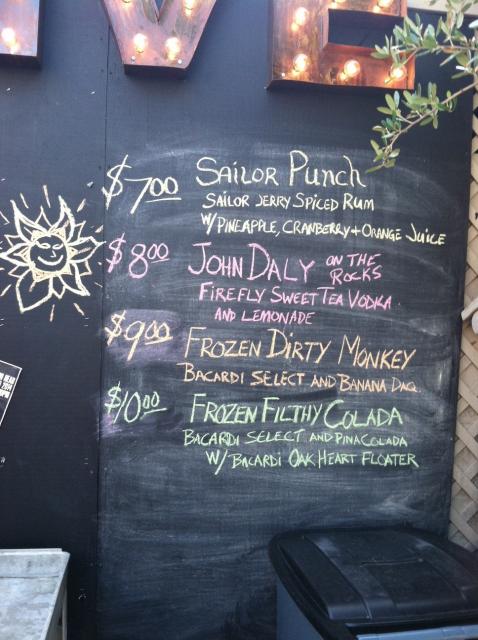 VE
$7.00 Sailor Punch
Sailor Jerry Spiced Rum
w/ Pineapple, Cranberry + Orange Juice
$8.00 John Daly on the Rocks
Firefly Sweet Tea Vodka
and Lemonade
$9.00 Frozen Dirty Monkey
Bacardi Select and Banana Daq.
$10.00 Frozen Filthy Colada
Bacardi Select and Pina Colada
w/ Bacardi Oak Heart Floater